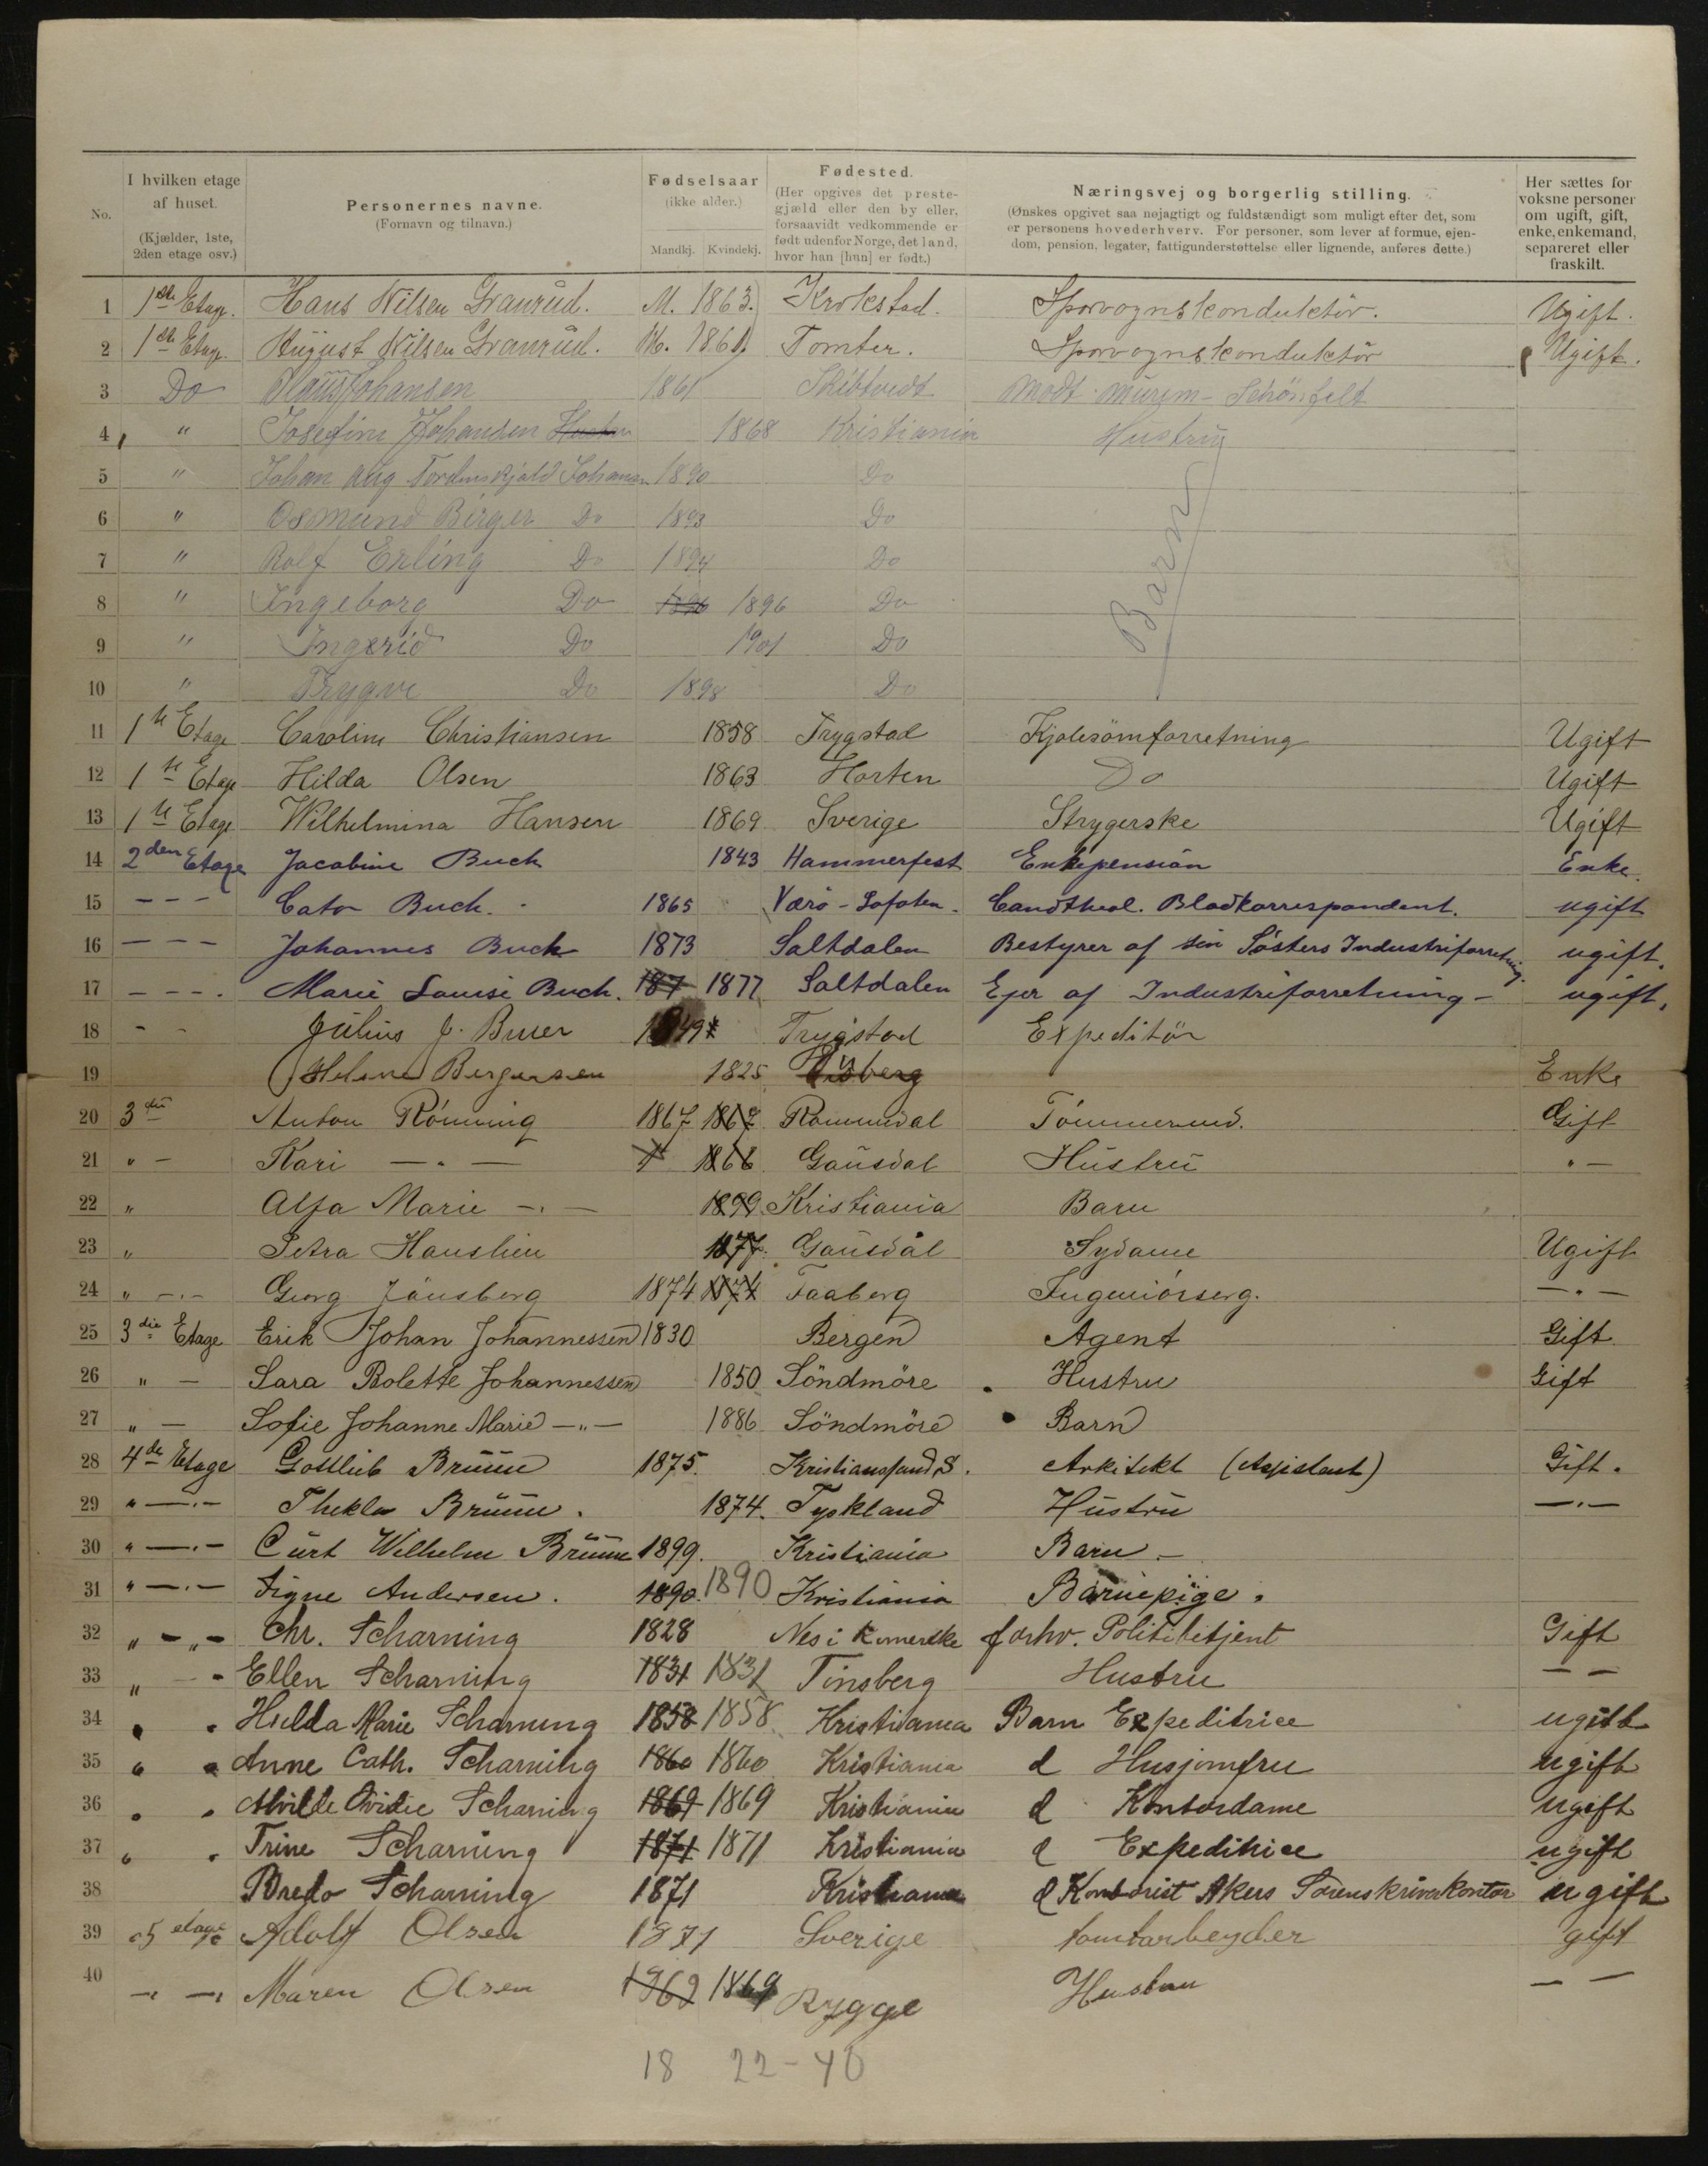 No.
I hvilken etage af huset. (Kjælder, 1ste, 2den etage osv.)
Personernes navne. (Fornavn og tilnavn.)
Fødselsaar (ikke alder.) Mandkj. Kvindekj.
Fødested. (Her opgives det prestegjæld eller den by eller, forsaavidt vedkommende er født udenfor Norge, det land, hvor han [hun] er født.)
Næringsvej og borgerlig stilling. (Ønskes opgivet saa nøjagtigt og fuldstændigt som muligt efter det, som er personens hovederhverv. For personer, som lever af formue, ejendom, pension, legater, fattigunderstøttelse eller lignende, anføres dette.)
Her sættes for voksne personer om ugift, gift, enke, enkemand, separeret eller fraskilt.
1 1ste Etage. Hans Nilsen Granrud. M. 1863. Krokstad. Sporvognskonduktör. Ugift.
2 1ste Etage. August Nilsen Granrud. M. 1861. Tomter. Sporvognskonduktör Ugift.
3 Do Johansen 1861 Skibtvedt Murerm- Schönfelt
4 " Josefine Johansen 1868 Kristiania Hustru
5 " Johan Aug Tordenskjold Johansen 1890 Do
6 " Osmund Birger Do 1893 Do
7 " Rolf Erling Do 1894 Do Barn
8 " Ingeborg Do 1896 1896 Do
9 " Ingerid Do 1901 Do
10 " Trygve Do 1898 Do
11 1ste Etage Caroline Christiansen 1858 Trygstad Kjolesömforretning Ugift
12 1ste Etage Hilda Olsen 1863 Horten Do Ugift
13 1ste Etage Wilhelmina Hansen 1869 Sverige Strygerske Ugift
14 2den Etage Jacobine Buch 1843 Hammerfest Enkepension Enke.
15 - - - Cato Buch. 1865 Værö - Lofoten. Candtheol. Bladkorrespondent. ugift
16 - - - Johannes Buch 1873 Saltdalen Bestyrer af sin Søsters Industriforretning. ugift.
17 - - - . Marie Louise Buch. 187 1877 Saltdalen Ejer af Industriforretning - ugift.
18 - - Julius J. Buer 1849 Trygstad Expeditör
19 Helene Bergersen 1825 Enke
20 3die Anton Rönning 1867 1867 Romsdal Tömmermd. Gift
21 " - Kari - . - 1 1866 Gausdal Hustru " -
22 " Alfa Marie - . - 1899 Kristiania Barn
23 " Petra Hauslien 1877 Gausdal Sydame Ugift
24 " - . - Georg Jönsberg 1874 1874 Faaberg Ingeniörserg. - . -
25 3die Etage Erik Johan Johannessen 1830 Bergen Agent Gift
26 " - Sara Bolette Johannessen 1850 Söndmöre Hustru Gift
27 " - Sofie Johanne Marie - " - 1886 Söndmöre Barn
28 4de Etage Gottlieb Brünn 1875. Kristianssand S. Arkitekt (Assistent) Gift.
29 " - . - Thekla Brünn. 1874. Tyskland Hustru - . -
30 " - . - Curt Wilhelm Brünn 1899. Kristiania Barn -
31 " - . - Signe Andersen. 1890 1890 Kristiania Barnepige.
32 " - " - Chr. Scharning 1828 Nes i Romerike forhv. Politibetjent Gift
33 " - - Ellen Scharning 1831 1831 Tönsberg Hustru - -
34 " " Hulda Marie Scharning 1858 1858 Kristiania Barn Expeditrice ugift
35 " " Anne Cath. Scharning 1860 1860 Kristiania d Husjomfru ugift
36 " " Alvilde Ovidie Scharning 1869 1869 Kristiania d Kontordame ugift
37 " " Trine Scharning 1871 1871 Kristiania d Expeditrice ugift
38 Bredo Scharning 1871 Kristiania d Kontorist Akers Sorenskriverkontor ugift
39 5 etage Adolf Olsen 1871 Sverige tomtarbeyder gift
40 - " - " Maren Olsen 1869 1869 Rygge Hustru - -
18 22 - 40